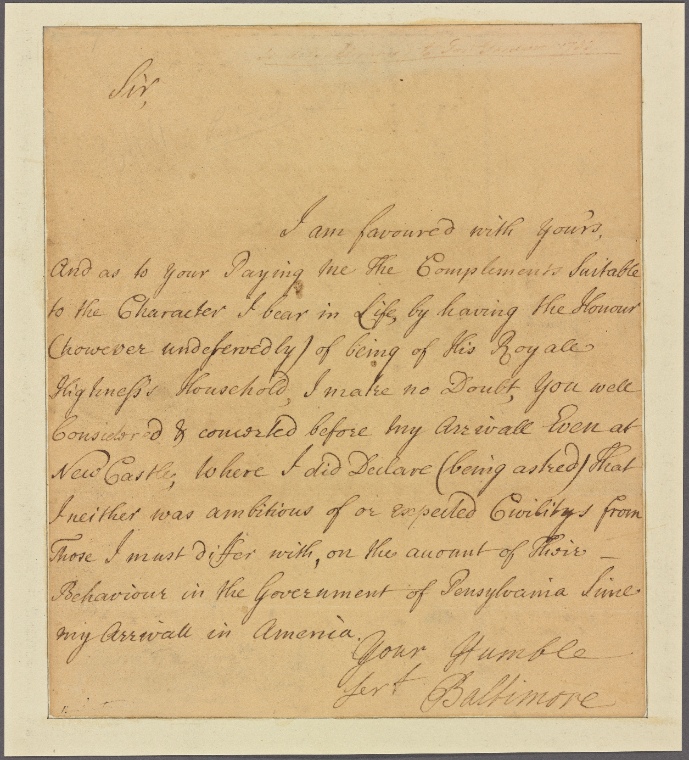 Sir,
I am favoured with yours,
And as to your Paying me the Compliments Suitable
to the Character I bear in Life, by having the Honour
(however undeservedly) of being of His Royall
Highness's Household, I make no Doubt, you well
Consider'd & concerted before my Arrivall Even at
New Castle, where I did Declare (being asked) that
I neither was ambitious of or expected Civilitys from
Those I must differ with, on the account of Their –
Behaviour in the Government of Pensylvania Since
my Arrivall in America.
Your Humble
Sert Baltimore